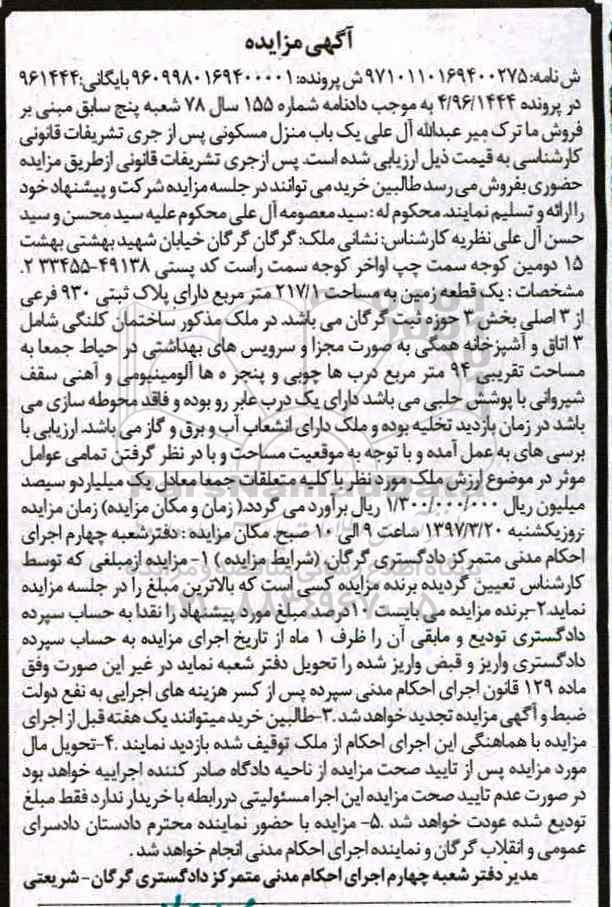 آگهی مزایده
ش نامه: ۹۷۱۰۱۱۰۱۶۹۴۰۰۲۷۵ ش پرونده: ۹۶۰۹۹۸۰۱۶۹۴۰۰۰۰۱ بایگانی: ۹۶۱۴۴۴
در پرونده ۴/۹۶/۱۴۴۴ به موجب دادنامه شماره ۱۵۵ سال ۷۸ شعبه پنج سابق مبنی بر
فروش ما ترک میر عبدالله آل علی یک باب منزل مسکونی پس از جری تشریفات قانونی
کارشناسی به قیمت ذیل ارزیابی شده است. پس ازجری تشریفات قانونی ازطریق مزایده
حضوری بفروش می رسد طالبین خرید می توانند در جلسه مزایده شرکت و پیشنهاد خود
را ارائه و تسلیم نمایند. محکوم له : سید معصومه آل علی محکوم علیه سید محسن و سید
حسن آل علی نظریه کارشناس: نشانی ملک: گرگان گرگان خیابان شهید بهشتی بهشت
۱۵ دومین کوجه سمت چپ اواخر کوجه سمت راست کد پستی ۴۹۱۳۸-۳۳۴۵۵ ۲.
مشخصات : یک قطعه زمین به مساحت ۲۱۷/۱ متر مربع دارای پلاک ثبتی ۹۳۰ فرعی
از ۳ اصلی بخش ۳ حوزه ثبت گرگان می باشد. در ملک مذکور ساختمان کلنگی شامل
۳ اتاق و آشپزخانه همگی به صورت مجزا و سرویس های بهداشتی در حیاط جمعا به
مساحت تقریبی ۹۴ متر مربع درب ها چوبی و پنجر ه ها آلومینیومی و آهنی سقف
شیروانی با پوشش حلبی می باشد دارای یک درب عابر رو بوده و فاقد محوطه سازی می
باشد در زمان بازدید تخلیه بوده و ملک دارای انشعاب آب و برق و گاز می باشد. ارزیابی با
برسی های به عمل آمده و با توجه به موقعیت مساحت و با در نظر گرفتن تمامی عوامل
موثر در موضوع ارزش ملک مورد نظر با کلیه متعلقات جمعا معادل یک میلیارد و سیصد
میلیون ریال ۱/۳۰۰/۰۰۰/۰۰۰ ریال برآورد می گردد.( زمان و مکان مزایده) زمان مزایده
:روزیکشنبه ۱۳۹۷/۳/۲۰ ساعت ۹ الی ۱۰ صبح. مکان مزایده : دفترشعبه چهارم اجرای
احکام مدنی متمرکز دادگستری گرگان (شرایط مزایده ) ۱- مزایده ازمبلغی که توسط
کارشناس تعیین گردیده برنده مزایده کسی است که بالاترین مبلغ را در جلسه مزایده
نماید.۲-برنده مزایده می بایست ۱۰درصد مبلغ مورد پیشنهاد را نقدا به حساب سپرده
دادگستری تودیع و مابقی آن را ظرف ۱ ماه از تاریخ اجرای مزایده به حساب سپرده
دادگستری واریز و قبض واریز شده را تحویل دفتر شعبه نماید در غیر این صورت وفق
ماده ۱۲۹ قانون اجرای احکام مدنی سپرده پس از کسر هزینه های اجرایی به نفع دولت
ضبط و آگهی مزایده تجدید خواهد شد .۳-طالبین خرید میتوانند یک هفته قبل از اجرای
مزایده با هماهنگی این اجرای احکام از ملک توقیف شده بازدید نمایند .۴-تحویل مال
مورد مزایده پس از تایید صحت مزایده از ناحیه دادگاه صادر کننده اجراییه خواهد بود
در صورت عدم تایید صحت مزایده این اجرا مسئولیتی دررابطه با خریدار ندارد فقط مبلغ
تودیع شده عودت خواهد شد .۵- مزایده با حضور نماینده محترم دادستان دادسرای
عمومی و انقلاب گرگان و نماینده اجرای احکام مدنی انجام خواهد شد .
مدیر دفتر شعبه چهارم اجرای احکام مدنی متمرکز دادگستری گرگان - شریعتی